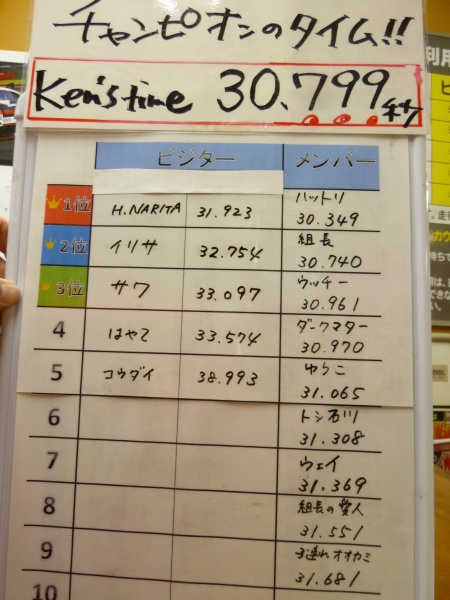 チャンピオンのタイム!!
Ken's time 30.799
ビジター メンバー
1位 H.NARITA 31.923 ハットリ
30.349
2位 イリサ 32.754 組長
30.740
3位 サワ 33.097 ウッチー
30.961
4 はやて 33.574 ダークマター
30.970
5 コウダイ 38.993 ゆうこ
31.065
6 トシ石川
31.308
7 ウェイ
31.369
8 組長の愛人
31.551
9 子連れオオカミ
31.681
10
利用